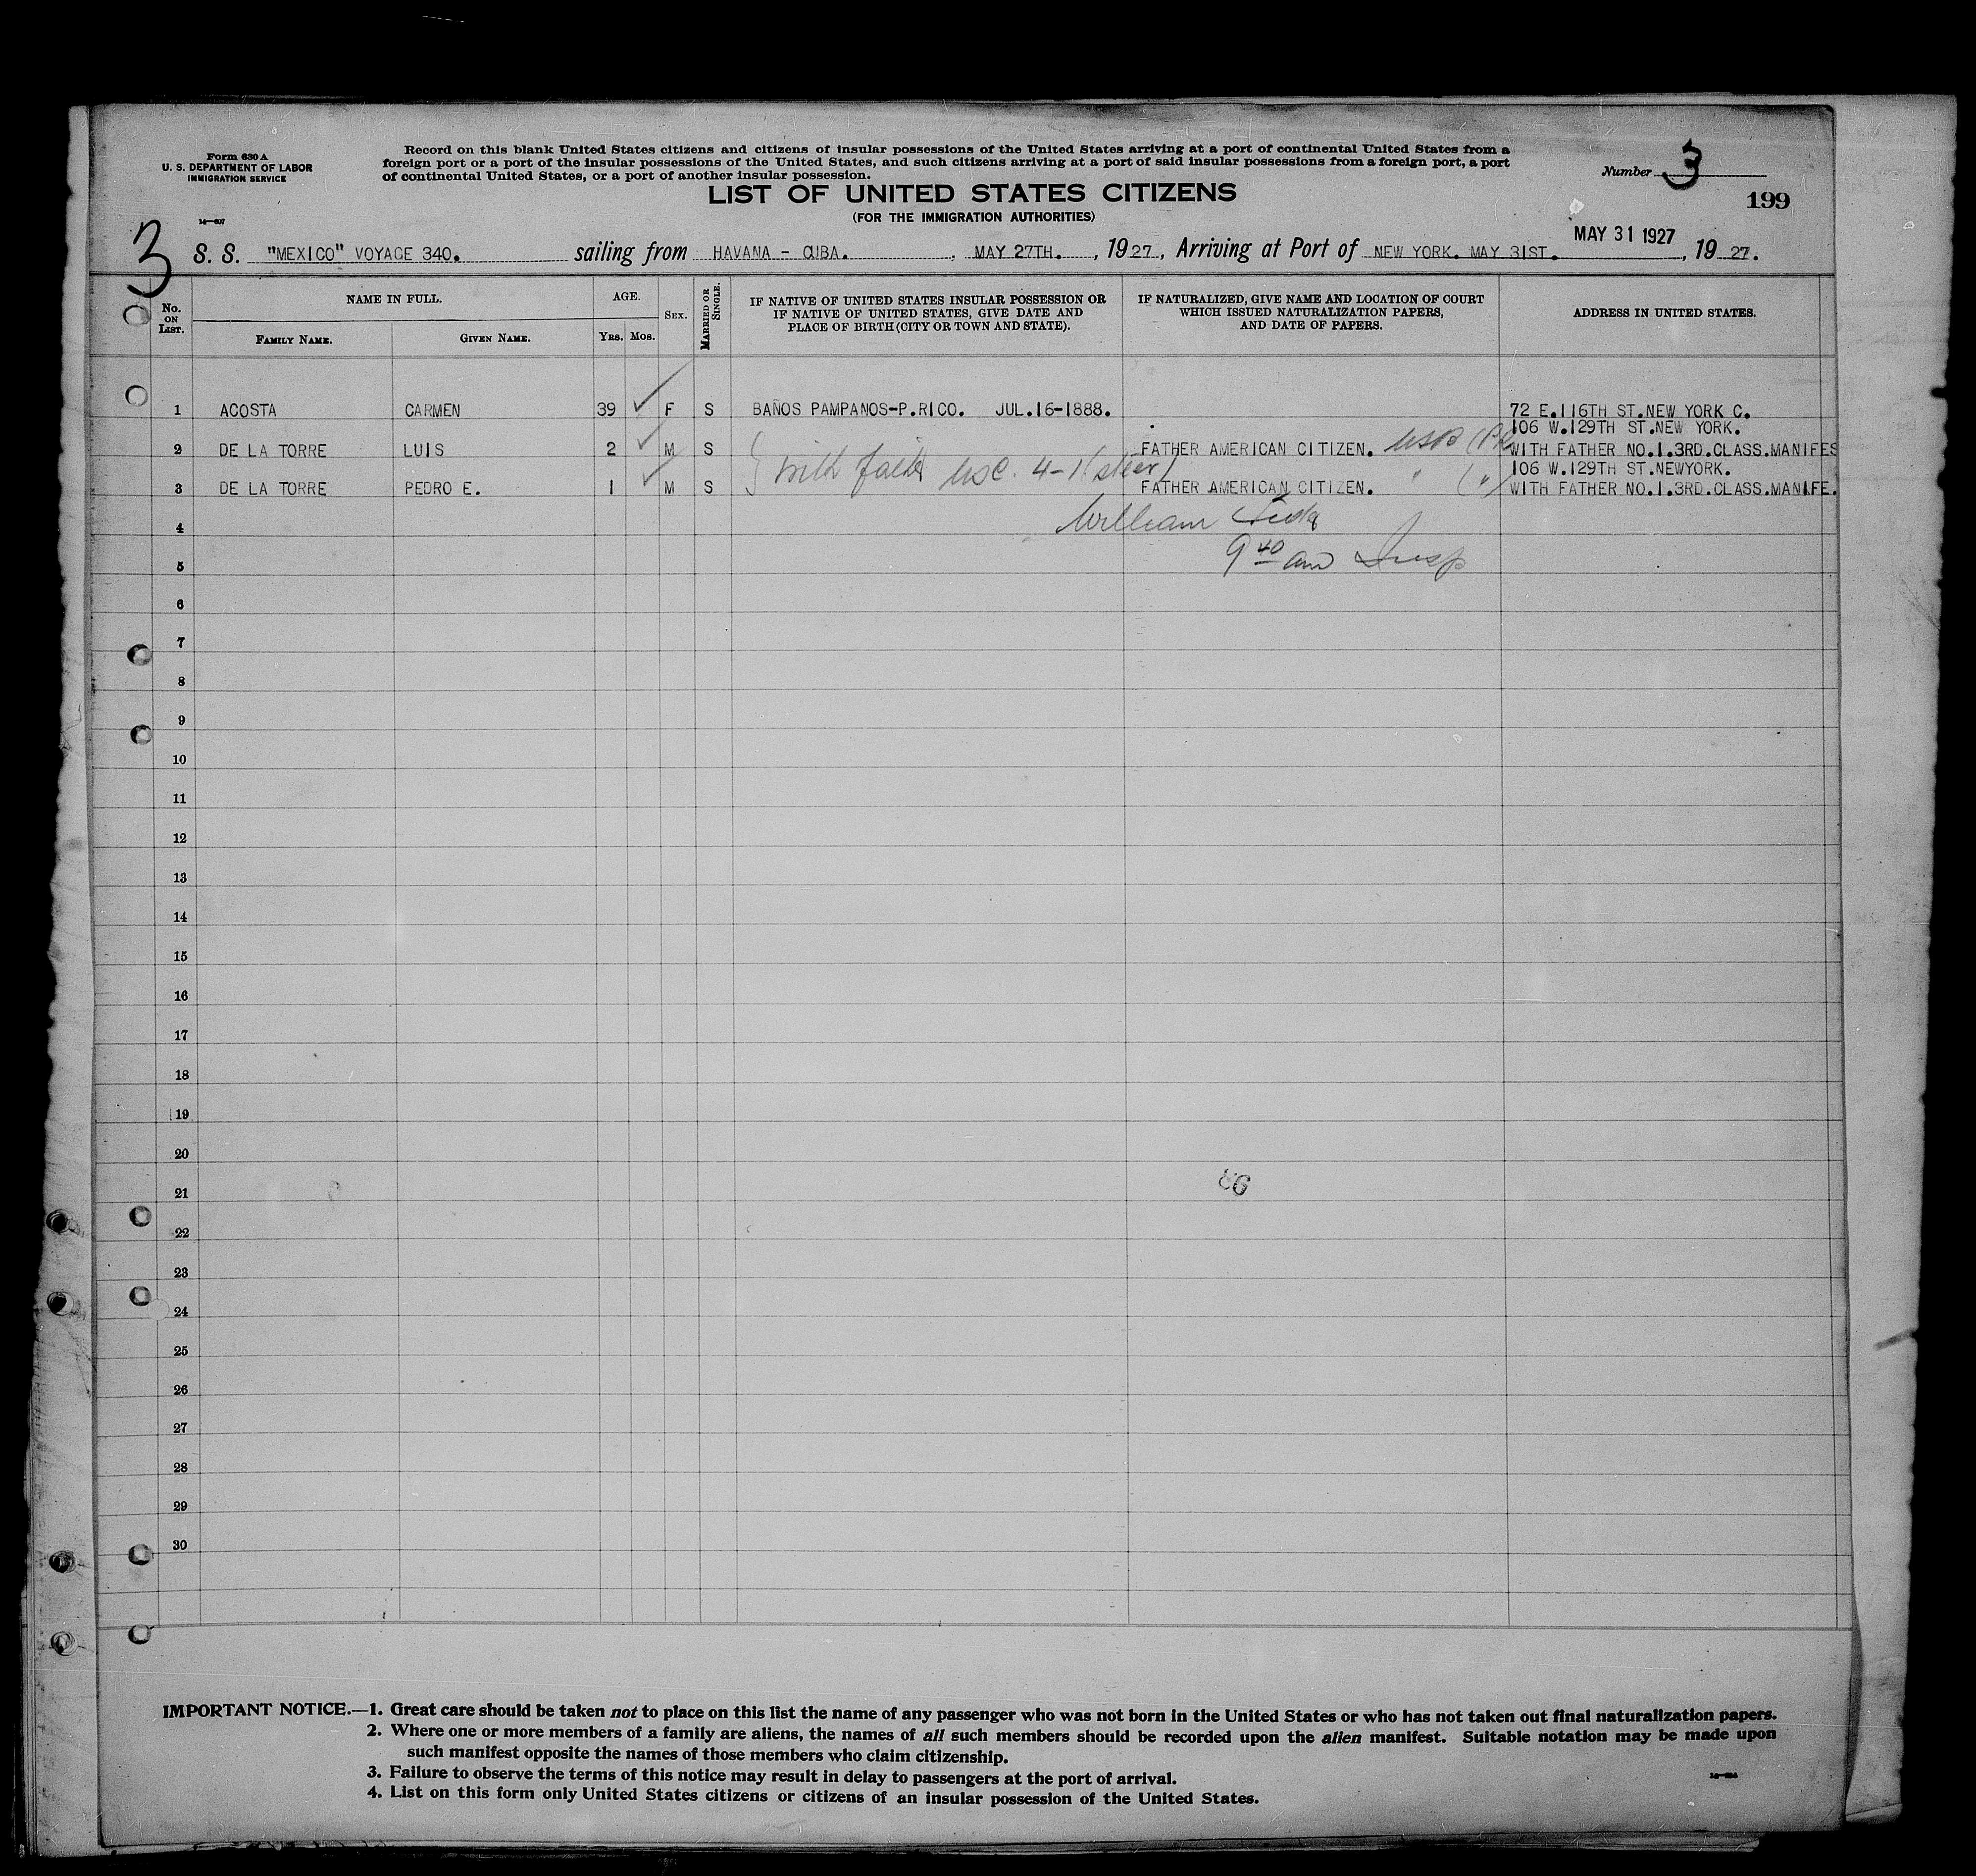 Form 630 A
U. S. DEPARTMENT OF LABOR
IMMIGRATION SERVICE
Record on this blank United States citizens and citizens of insular possessions of the United States arriving at a port of continental United States from a
foreign port or a port of the insular possessions of the United States, and such citizens arriving at a port of said insular possessions from a foreign port, a port
of continental United States, or a port of another insular possession.
Number 3
199
LIST OF UNITED STATES CITIZENS
(FOR THE IMMIGRATION AUTHORITIES)
3
MAY 31 1927
S. S. "MEXICO" VOYAGE 340. sailing from HAVANA - CUBA. , MAY 27TH. , 19 27, Arriving at Port of NEW YORK. MAY 31ST. , 19 27.
No. ON LIST.
NAME IN FULL.
FAMILY NAME. GIVEN NAME.
AGE.
YRS. MOS.
SEX.
MARRIED OR SINGLE.
IF NATIVE OF UNITED STATES INSULAR POSSESSION OR
IF NATIVE OF UNITED STATES, GIVE DATE AND
PLACE OF BIRTH (CITY OR TOWN AND STATE).
IF NATURALIZED, GIVE NAME AND LOCATION OF COURT
WHICH ISSUED NATURALIZATION PAPERS,
AND DATE OF PAPERS.
ADDRESS IN UNITED STATES.
1 ACOSTA CARMEN 39 F S BAÑOS PAMPANOS-P.RICO. JUL.16-1888. 72 E.116TH ST.NEW YORK C.
106 W.129TH ST.NEW YORK.
2 DE LA TORRE LUIS 2 M S FATHER AMERICAN CITIZEN. WITH FATHER NO.1.3RD.CLASS.MANIFES
with father USC. 4-1 (steer)
106 W.129TH ST.NEWYORK.
3 DE LA TORRE PEDRO E. 1 M S FATHER AMERICAN CITIZEN. " (") WITH FATHER NO.1.3RD.CLASS.MANIFE.
4
William
5
9 40 am Insp
6
7
8
9
10
11
12
13
14
15
16
17
18
19
20
21
22
23
24
25
26
27
28
29
30
IMPORTANT NOTICE.—1. Great care should be taken not to place on this list the name of any passenger who was not born in the United States or who has not taken out final naturalization papers.
2. Where one or more members of a family are aliens, the names of all such members should be recorded upon the alien manifest. Suitable notation may be made upon
such manifest opposite the names of those members who claim citizenship.
3. Failure to observe the terms of this notice may result in delay to passengers at the port of arrival.
4. List on this form only United States citizens or citizens of an insular possession of the United States.